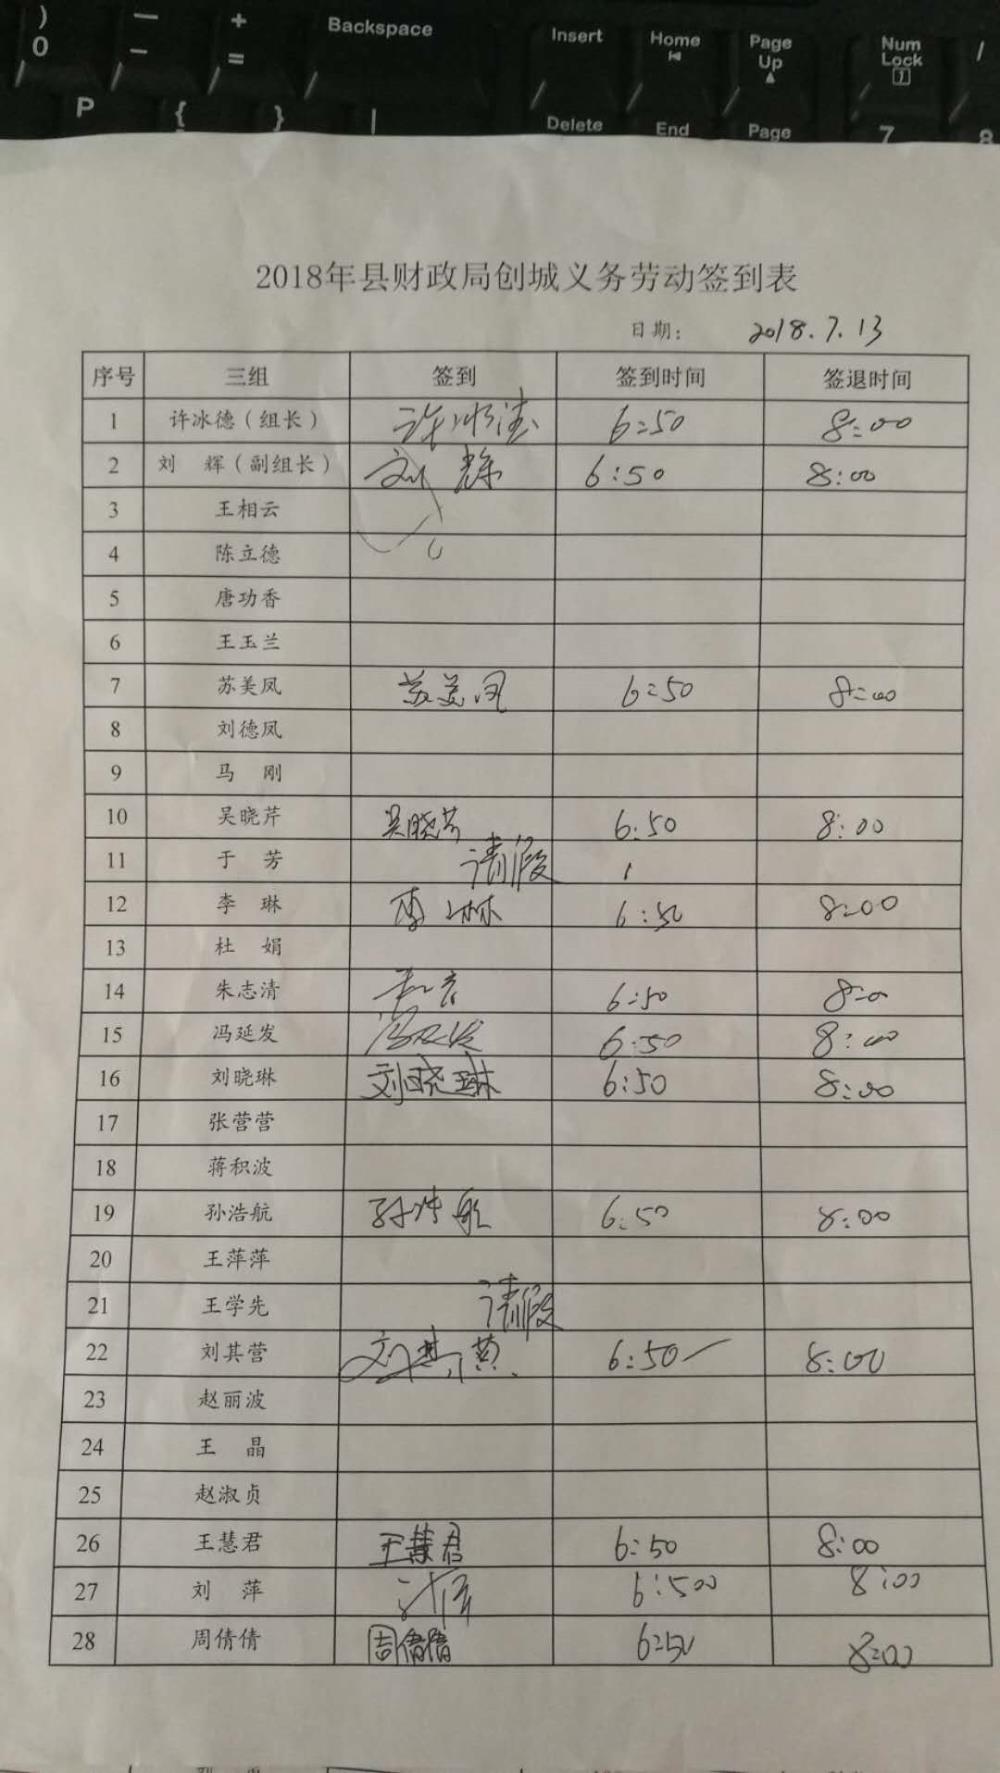 ) — + Backspace Insert Home Page Up Num Lock /
0 - =
P { } | Delete End Page 7 8
2018年县财政局创城义务劳动签到表
日期: 2018.7.13
序号 三组 签到 签到时间 签退时间
1 许冰德(组长) 许冰德 6:50 8:00
2 刘 辉(副组长) 刘辉 6:50 8:00
3 王相云
4 陈立德
5 唐功香
6 王玉兰
7 苏美凤 苏美凤 6:50 8:00
8 刘德凤
9 马 刚
10 吴晓芹 吴晓芹 6:50 8:00
11 于 芳 请假
12 李 琳 李琳 6:50 8:00
13 杜 娟
14 朱志清 6:50 8:00
15 冯延发 冯延发 6:50 8:00
16 刘晓琳 刘晓琳 6:50 8:00
17 张营营
18 蒋积波
19 孙浩航 孙浩航 6:50 8:00
20 王萍萍
21 王学先 请假
22 刘其营 刘其营 6:50 8:00
23 赵丽波
24 王 晶
25 赵淑贞
26 王慧君 王慧君 6:50 8:00
27 刘 萍 6:500 8:00
28 周倩倩 周倩倩 6:50 8:00